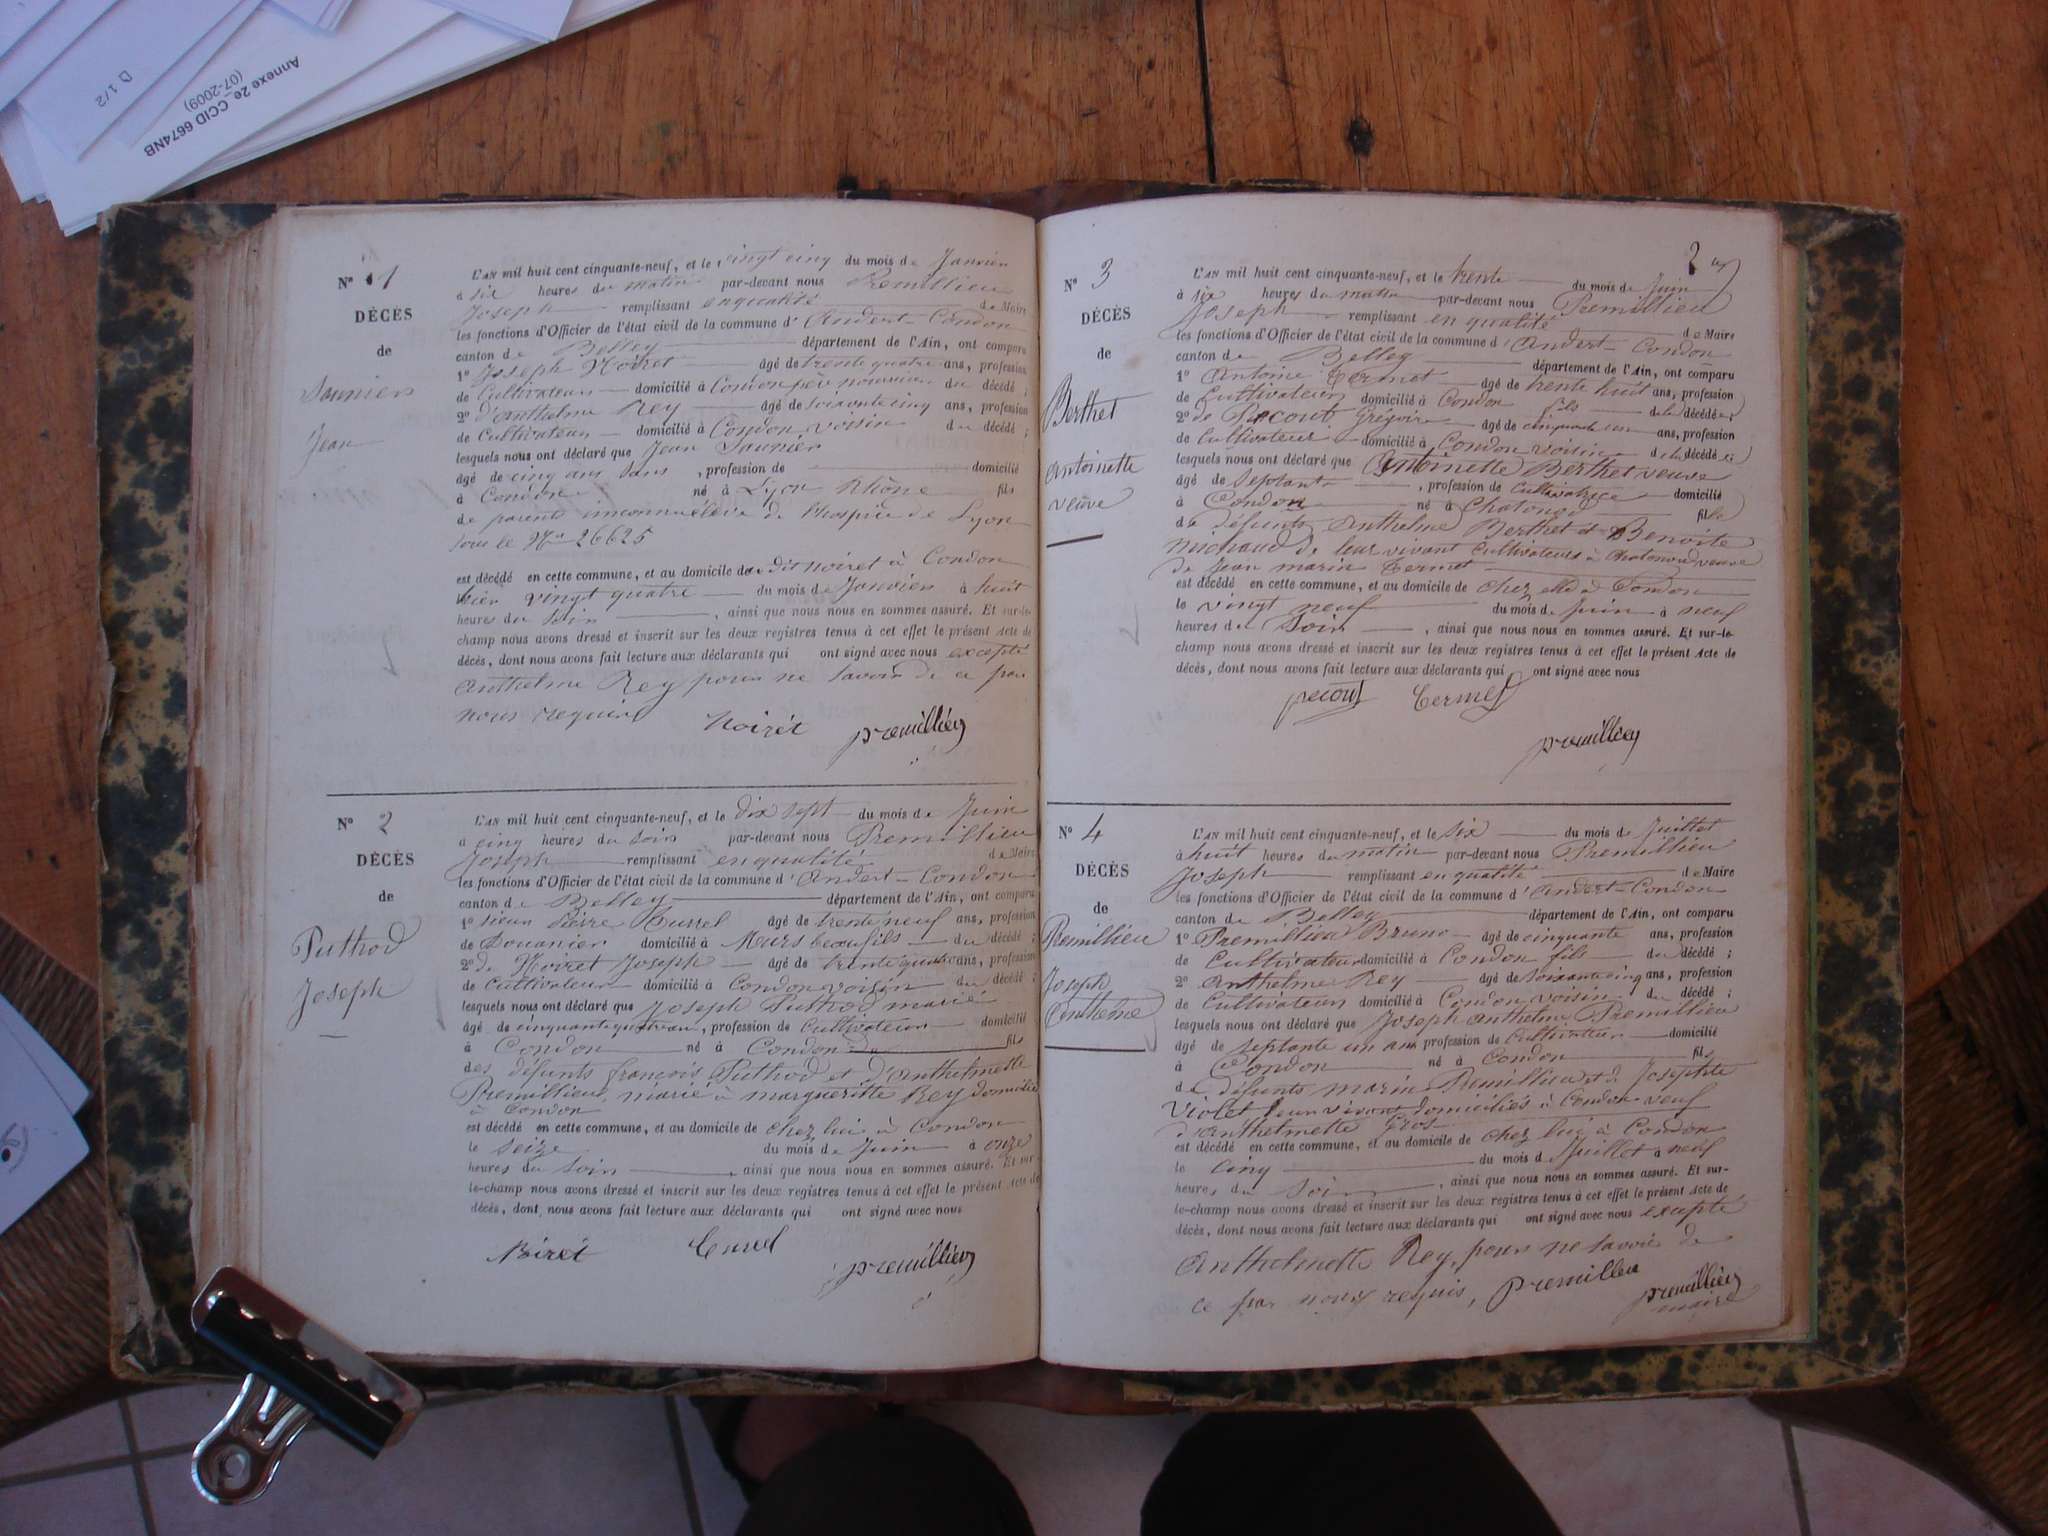 D 1/2
Annexe 2e. CCID 6674NB
(07-2009)
N° 1
DÉCÈS
de
Saunier
Jean
L'AN mil huit cent cinquante-neuf, et le vingt cinq du mois de Janvier
à six heures du matin par-devant nous Premillieu
Joseph remplissant en qualité de Maire
les fonctions d'Officier de l'état civil de la commune d'Andert-Condon
canton de Belley département de l'Ain, ont comparu
1° Joseph Noiret âgé de trente quatre ans, profession
de Cultivateur domicilié à Condon père nourricier du décédé ;
2° d'Anthelme Rey âgé de soixante cinq ans, profession
de Cultivateur domicilié à Condon voisin du décédé ;
lesquels nous ont déclaré que Jean Saunier
âgé de cinq ans sans , profession de domicilié
à Condon né à Lyon Rhône fils
de parents inconnu élevé de l'hospice de Lyon
sous le N° 26625
est décédé en cette commune, et au domicile de dit Noiret à Condon
hier vingt quatre du mois de Janvier à huit
heures du soir , ainsi que nous nous en sommes assuré. Et sur-le-
champ nous avons dressé et inscrit sur les deux registres tenus à cet effet le présent Acte de
décès, dont nous avons fait lecture aux déclarants qui ont signé avec nous excepté
Anthelme Rey pour ne savoir de ce par
nous requis
Noirét premillieu
N° 2
DÉCÈS
de
Puthod
Joseph
L'AN mil huit cent cinquante-neuf, et le dix sept du mois de Juin
à cinq heures du soir par-devant nous Premillieu
Joseph remplissant en qualité de Maire
les fonctions d'Officier de l'état civil de la commune d'Andert-Condon
canton de Belley département de l'Ain, ont comparu
1° sieur Pierre âgé de trente neuf ans, profession
de Douanier domicilié à Murs beaufils du décédé ;
2° de Noiret Joseph âgé de trente quatre ans, profession
de Cultivateur domicilié à Condon voisin du décédé ;
lesquels nous ont déclaré que Joseph Puthod marié
âgé de cinquante quatre an, profession de Cultivateur domicilié
à Condon né à Condon fils
des défunts françois Puthod et d'Anthelmette
Premillieu, marié à margueritte Rey domicilié
à Condon
est décédé en cette commune, et au domicile de chez lui à Condon
le seize du mois de Juin à onze
heures du soir , ainsi que nous nous en sommes assuré. Et sur-
le-champ nous avons dressé et inscrit sur les deux registres tenus à cet effet le présent Acte de
décès, dont nous avons fait lecture aux déclarants qui ont signé avec nous
Noirét premillieu
2
N° 3
DÉCÈS
de
Berthet
Antoinette
veuve
L'AN mil huit cent cinquante-neuf, et le trente du mois de Juin
à six heures du matin par-devant nous Premillieu
Joseph remplissant en qualité de Maire
les fonctions d'Officier de l'état civil de la commune d'Andert-Condon
canton de Belley département de l'Ain, ont comparu
1° Antoine Termet âgé de trente huit ans, profession
de Cultivateur domicilié à Condon fils de la décédée ;
2° de Pecout Grégoire âgé de cinquante ans, profession
de Cultivateur domicilié à Condon voisin de la décédée ;
lesquels nous ont déclaré que Antoinette Berthet veuve
âgé de septante , profession de Cultivatrice domicilié
à Condon né à Chatonod fille
de défunts Anthelme Berthet et Benoite
michaud de leur vivant Cultivateurs à Chatonod veuve
de Jean marin Termet
est décédé en cette commune, et au domicile de chez elle à Condon
le vingt neuf du mois de Juin à neuf
heures du Soir , ainsi que nous nous en sommes assuré. Et sur-le-
champ nous avons dressé et inscrit sur les deux registres tenus à cet effet le présent Acte de
décès, dont nous avons fait lecture aux déclarants qui ont signé avec nous
pecout Termet
premillieu
N° 4
DÉCÈS
de
Premillieu
Joseph
Anthelme
L'AN mil huit cent cinquante-neuf, et le six du mois de Juillet
à huit heures du matin par-devant nous Premillieu
Joseph remplissant en qualité de Maire
les fonctions d'Officier de l'état civil de la commune d'Andert-Condon
canton de Belley département de l'Ain, ont comparu
1° Premillieu Bruno âgé de cinquante ans, profession
de Cultivateur domicilié à Condon fils du décédé ;
2° Anthelme Rey âgé de soixante cinq ans, profession
de Cultivateur domicilié à Condon voisin du décédé ;
lesquels nous ont déclaré que Joseph Anthelme Premillieu
âgé de septante un ans profession de Cultivateur domicilié
à Condon né à Condon fils
de défunts marin Premillieu et de Josephte
Violet leur vivant domiciliés à Condon veuf
d'Anthelmette Gros
est décédé en cette commune, et au domicile de chez lui à Condon
le cinq du mois d Juillet à neuf
heures du Soir , ainsi que nous nous en sommes assuré. Et sur-
le-champ nous avons dressé et inscrit sur les deux registres tenus à cet effet le présent Acte de
décès, dont nous avons fait lecture aux déclarants qui ont signé avec nous excepté
Anthelmette Rey, pour ne savoir de
ce par nous requis, premilleu premillieu
maire